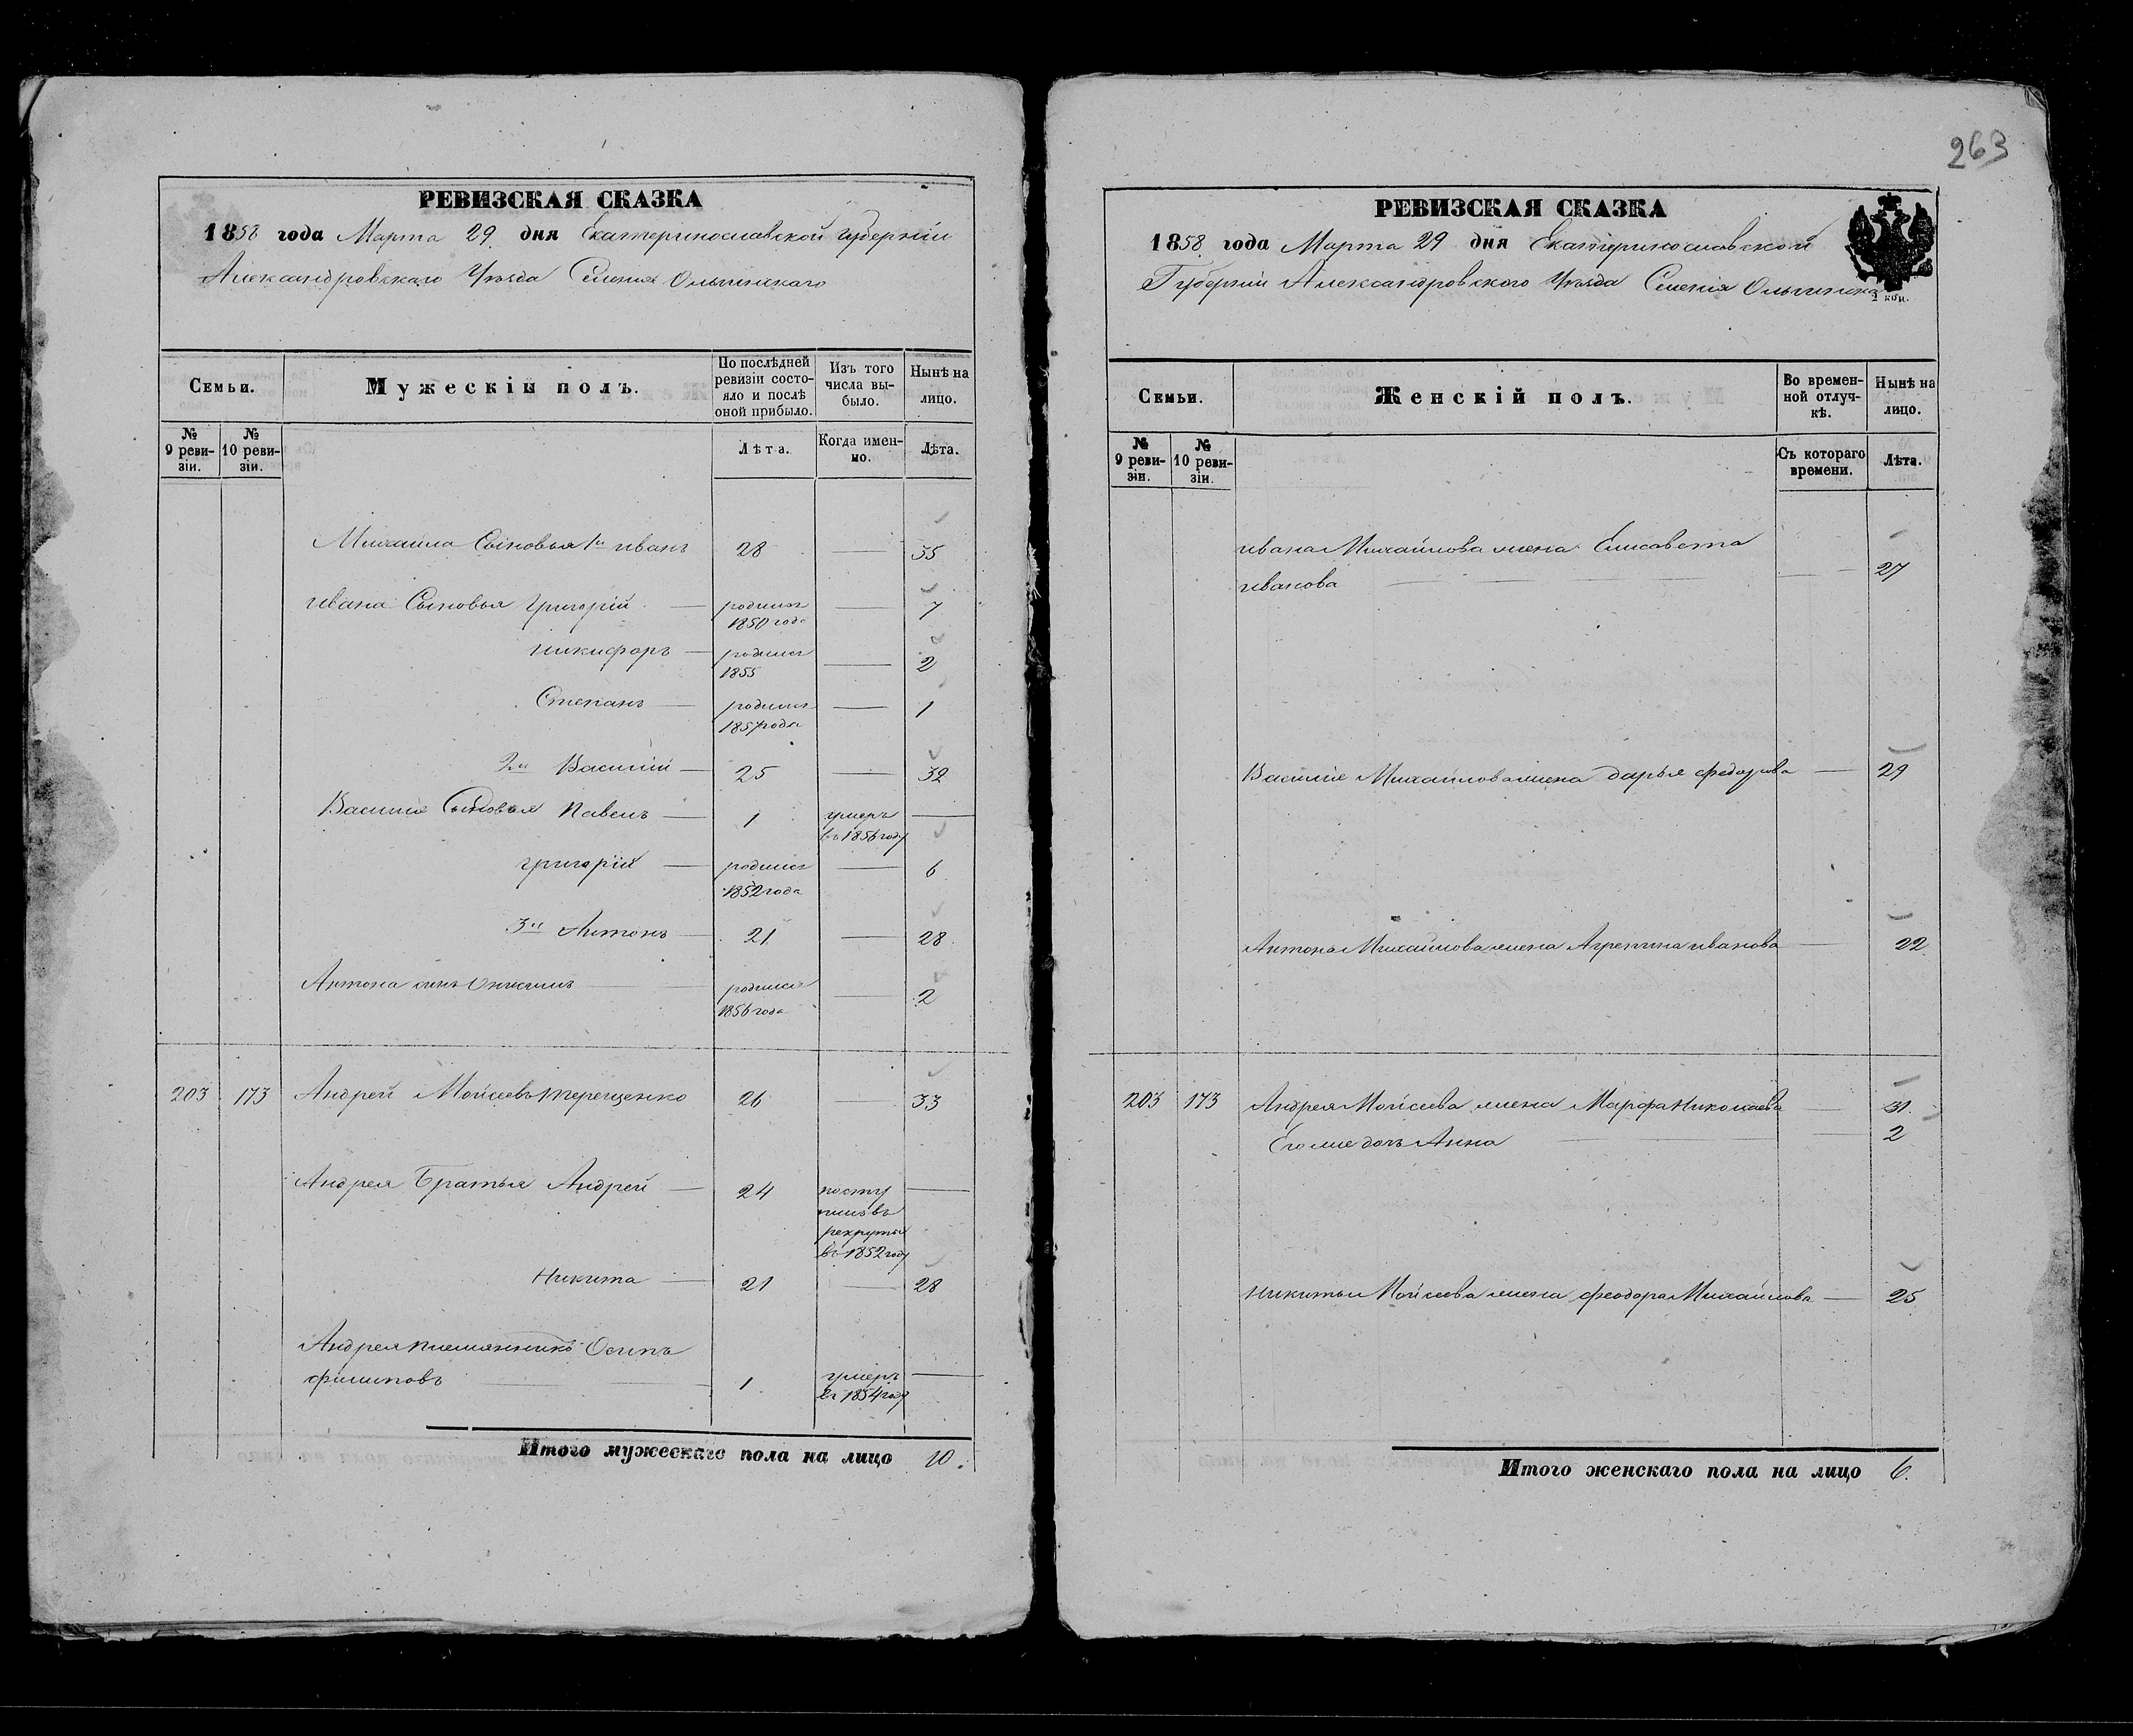 263
РЕВИЗСКАЯ СКАЗКА
1858 года Марта 29 дня Екатеринославской губерніи
Александровскаго Уѣзда Селенія Ольгинскаго
Семьи.
Мужескій полъ.
По послѣдней ревизіи состо-
яло и послѣ
оной прибыло.
Изъ того
числа вы-
было.
Нынѣ на
лицо.
№
9 реви-
зіи.
№
10 реви-
зіи.
Лѣта.
Когда имен-
но.
Лѣта.
Михаила Сыновья 1й иванъ 28 35
ивана Сыновья Григорій родился 7
1850 года
никифоръ родился 2
1855
Степанъ родился 1
1857 года
2й Василій 25 32
Василія Сыновья Павелъ 1 умеръ
въ 1856 году
григорій родился 6
1852 года
3й Антонъ 21 28
Антона сынъ Онисимъ родился 2
1856 года
203 173 Андрей Мойсеевъ терещенко 26 33
Андрея Братья Андрей 24 посту
пилъ въ
рекруты
въ 1852 году
Никита 21 28
Андрея племянникъ Осипъ
филиповъ 1 умеръ
въ 1854 году
Итого мужескаго пола на лицо 10.
РЕВИЗСКАЯ СКАЗКА
1858 года Марта 29 дня Екатеринославской
Губерніи Александровского Уѣзда Селенія Ольгинска
2 коп.
Семьи.
Женскій полъ.
Во времен-
ной отлуч-
кѣ.
Нынѣ на
лицо.
№
9 реви-
зіи.
№
10 реви-
зіи.
Съ котораго
времени.
Лѣта.
ивана Михайлова жена Елисавета
иванова 27
Василія Михайлова жена дарья федорова 29
Антона Михайлова жена Агрепина иванова 22
203 173 Андрея Мойсеева жена Марфа Николаева 31
Его же дочь Анна 2
никиты Мойсеева жена феодора Михайлова 25
Итого женскаго пола на лицо 6.